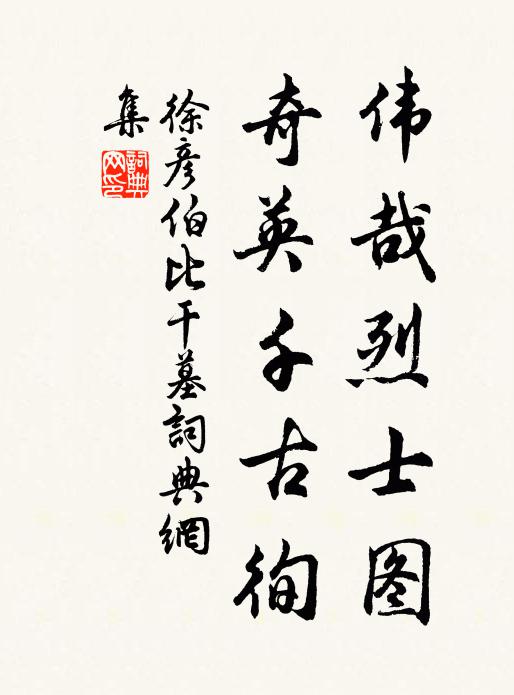 伟哉烈士图
奇英千古徇
徐彦伯比干墓詞典網
集
詞典
网印